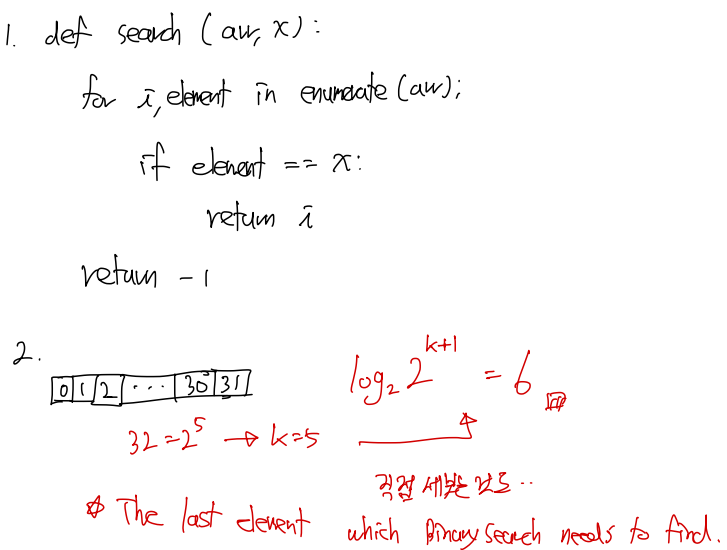 1. def search (arr, x):
for i, element in enumerate(arr);
if element == x:
return i
return -1
2.
0 1 2 ... 30 31
log₂ 2^{k+1} = 6
32 = 2⁵ → k=5
직접 세보는 것도..
The last element which Binary Search needs to find.